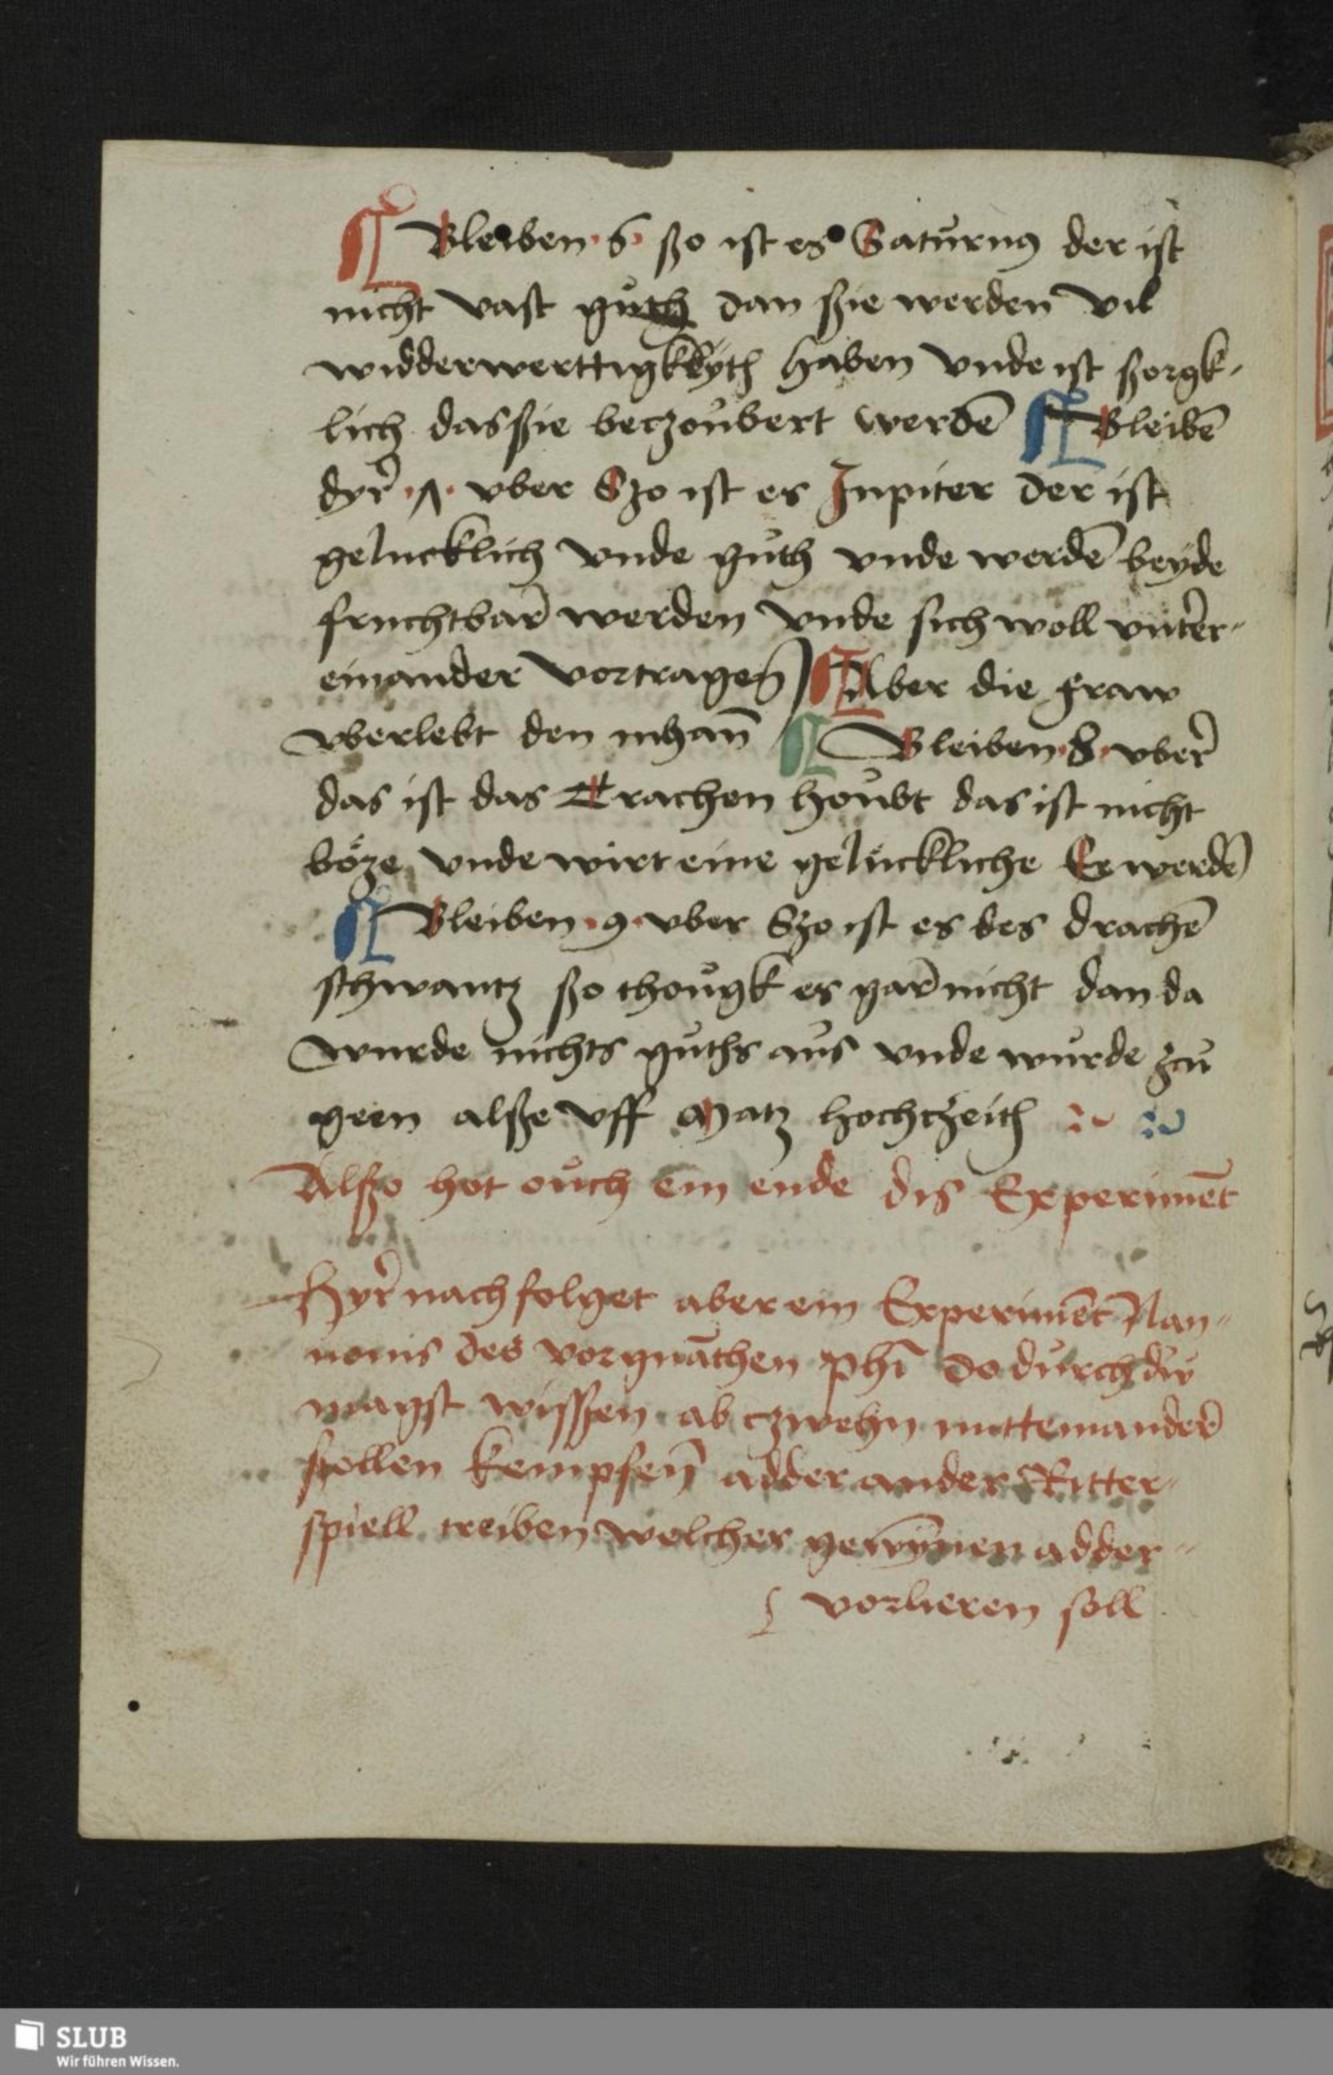 ¶ Bleiben ·6· ßo ist es Saturnꝯ der ist
nicht vast guth dan ßie werden vil
widderwerttigkkyth haben vnde ist ßorgk-
lich das ßie beczoubert werdē ¶ Bleibē
dyr̄ ·7· vber Szo ist es Jupiter der ist
gelucklich vnde guth vnde werdē beyde
fruchtbar̄ werden vnde sich woll vnter-
einander vortragen̄ ¶ Aber die fraw
vberlebt den mhan̄ ¶ Bleiben ·8· vber̄
das ist das Trachen houbt das ist nicht
böze vnde wirt eine gelückliche Ee werdē
¶ Bleiben ·9· vber Szo ist es des drachē
schwantz ßo thougk es gar̄ nicht dan da
wurde nichts guths aus vnde wurde zcu
geen alße vff Matz hochczeith
Alßo hot ouch ein ende dis Experimēt
Hyr̄ nach folget aber ein Experimēt Nan-
nonis des vorgnāthen phī do durch du
magst wissen ab czwehn mitteinander̄
ßollen kempfen̄ adder ander Ritter-
spiell treiben welcher gewȳnen adder
vorlieren soll
SLUB
Wir führen Wissen.